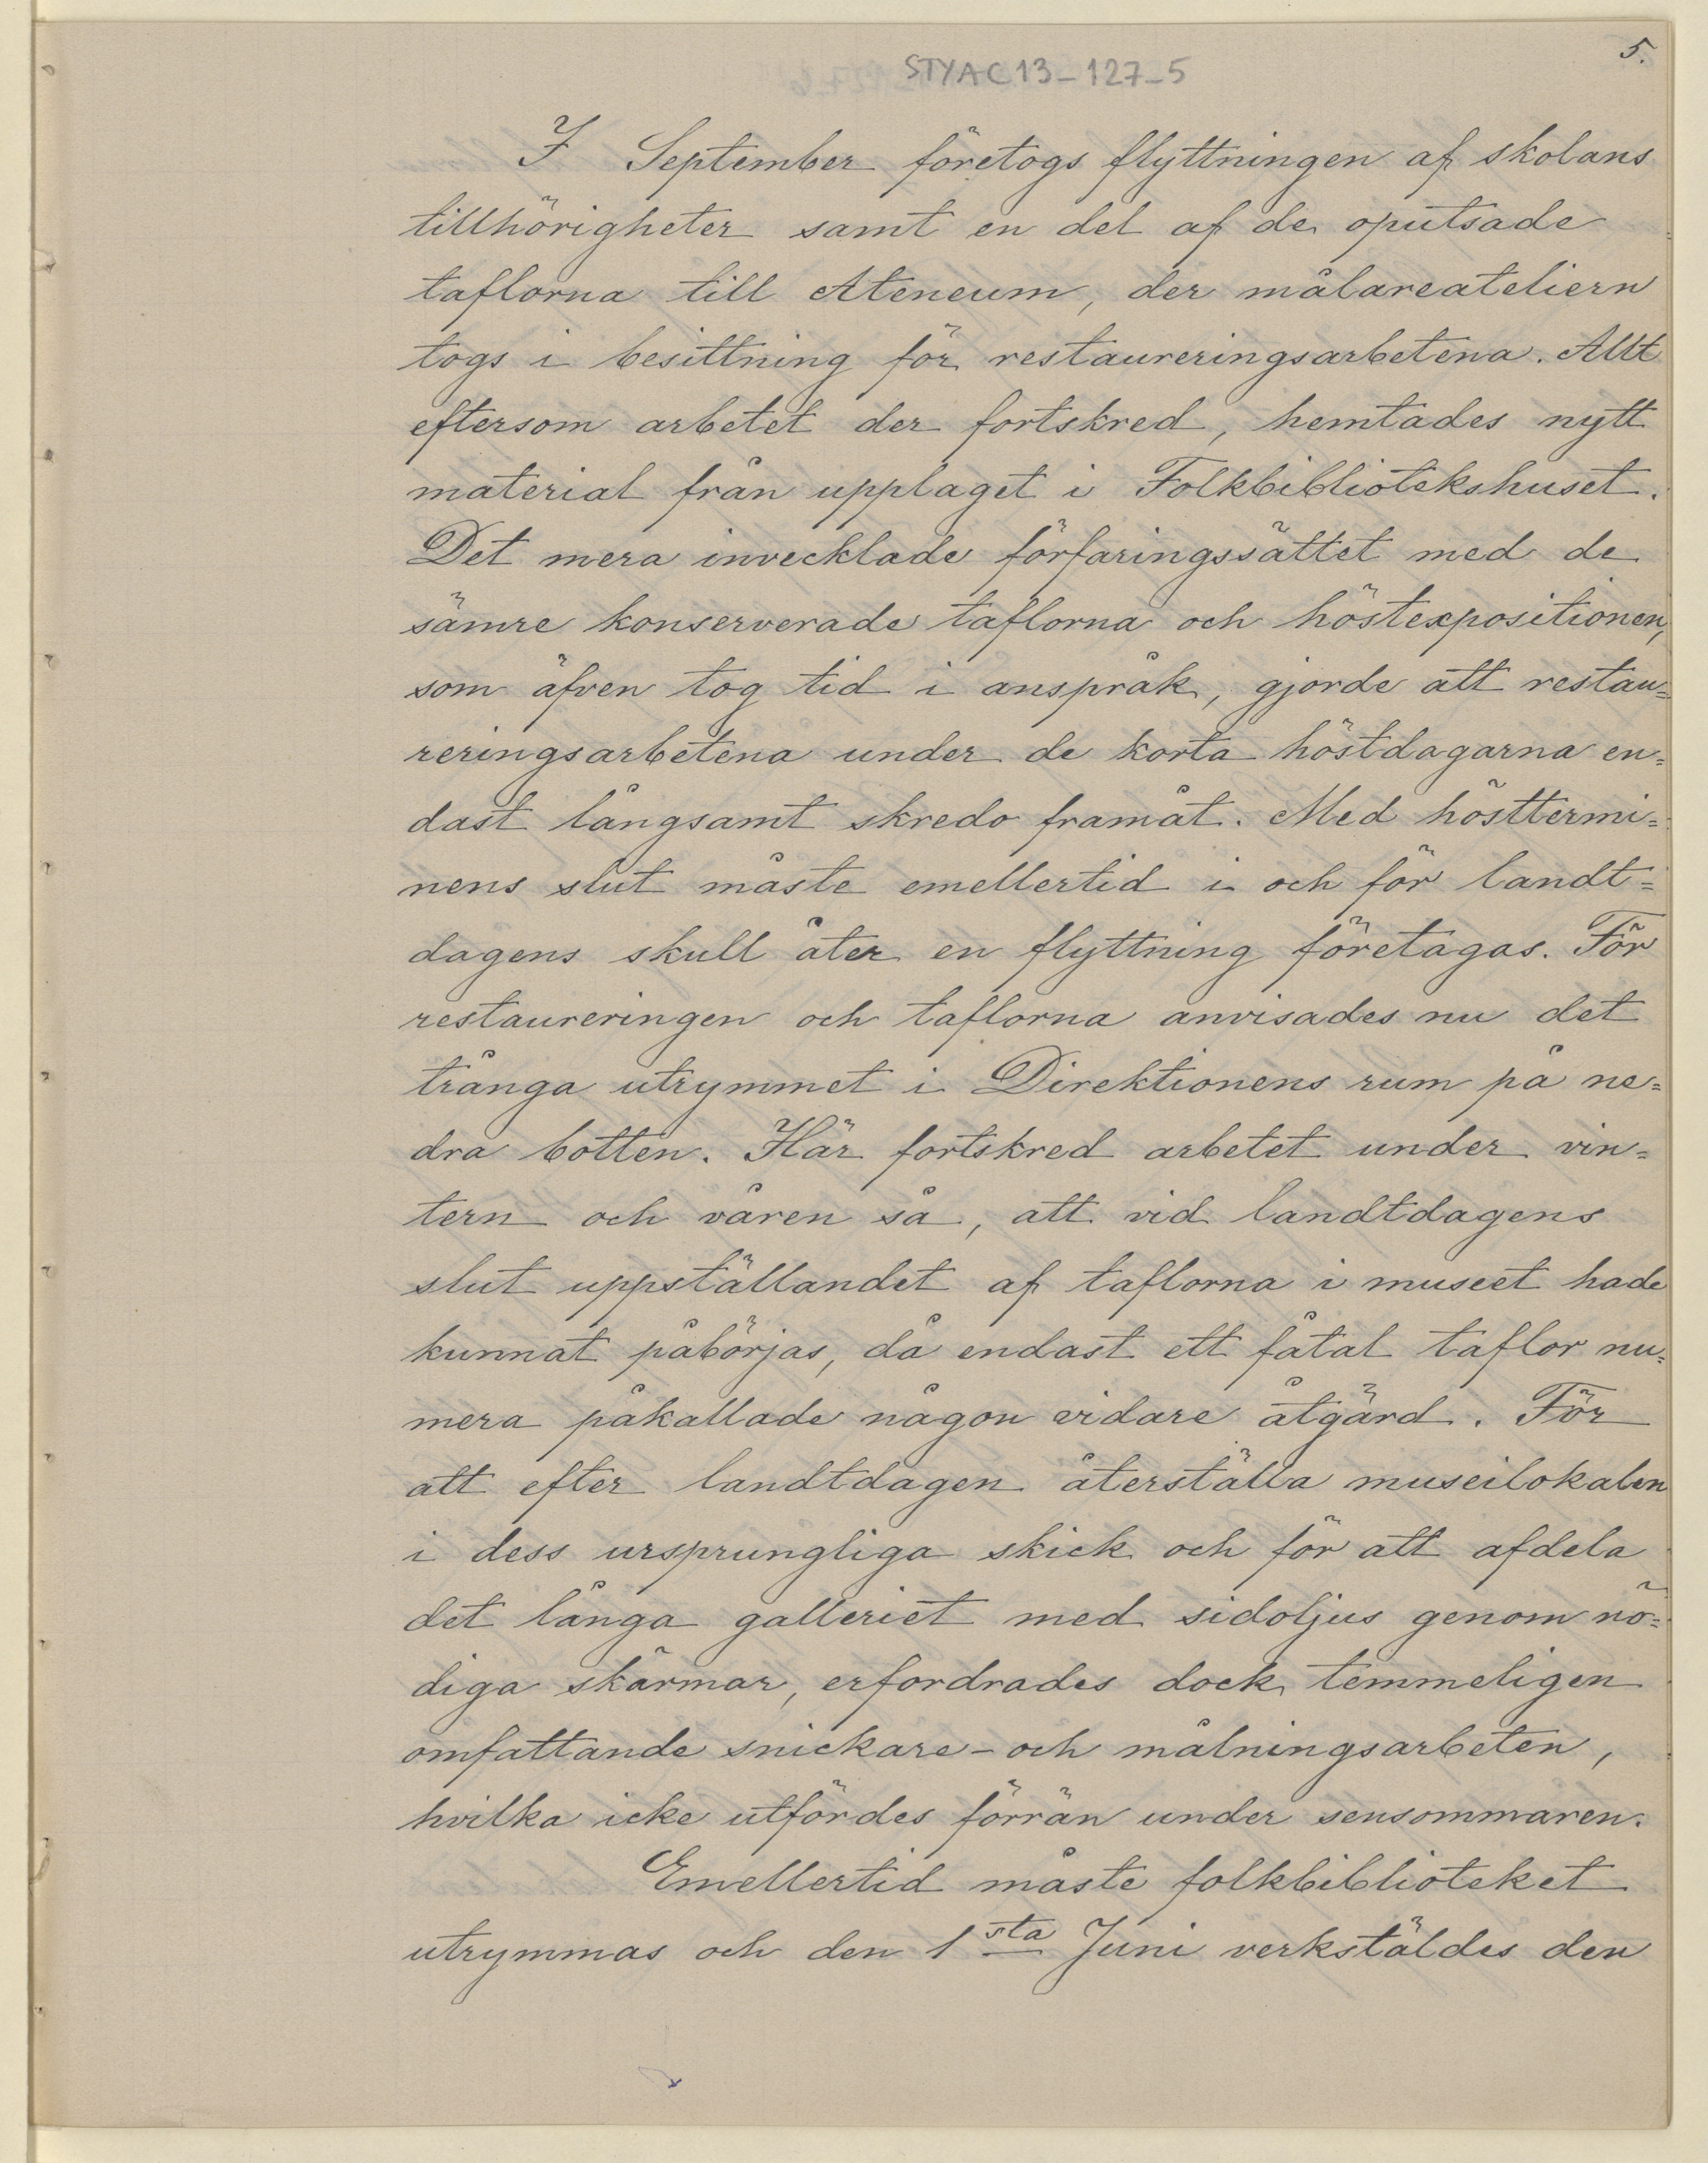 5.
STYAC13-127-5
I September företogs flyttningen af skolans
tillhörigheter samt en del af de oputsade
taflorna till Ateneum, der målareateliern
togs i besittning för restaureringsarbetena. Allt
eftersom arbetet der fortskred, hemtades nytt
material från upplaget i Folkbibliotekshuset.
Det mera invecklade förfaringssättet med de
sämre konserverade taflorna och höstexpositionen,
som äfven tog tid i anspråk, gjorde att restau=
reringsarbetena under de korta höstdagarna en=
dast långsamt skredo framåt. Med hösttermi=
nens slut måste emellertid i och för landt=
dagens skull åter en flyttning företagas. För
restaureringen och taflorna anvisades nu det
trånga utrymmet i Direktionens rum på ne=
dra botten. Här fortskred arbetet under vin=
tern och våren så, att vid landtdagens
slut uppställandet af taflorna i museet hade
kunnat påbörjas, då endast ett fåtal taflor nu=
mera påkallade någon vidare åtgärd. För
att efter landtdagen återställa museilokalen
i dess ursprungliga skick och för att afdela
det långa galleriet med sidoljus genom nö=
diga skärmar, erfordrades dock temmeligen
omfattande snickare- och målningsarbeten,
hvilka icke utfördes förrän under sensommaren.
Emellertid måste folkbiblioteket
utrymmas och den 1sta Juni verkstäldes den